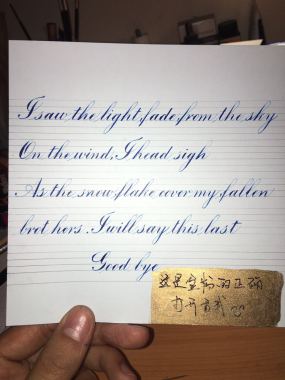 I saw the light fade from the sky
On the wind, I head sigh
As the snow flake cover my fallen
brothers. I will say this last
Good bye
这是金粉的正确
打开方式